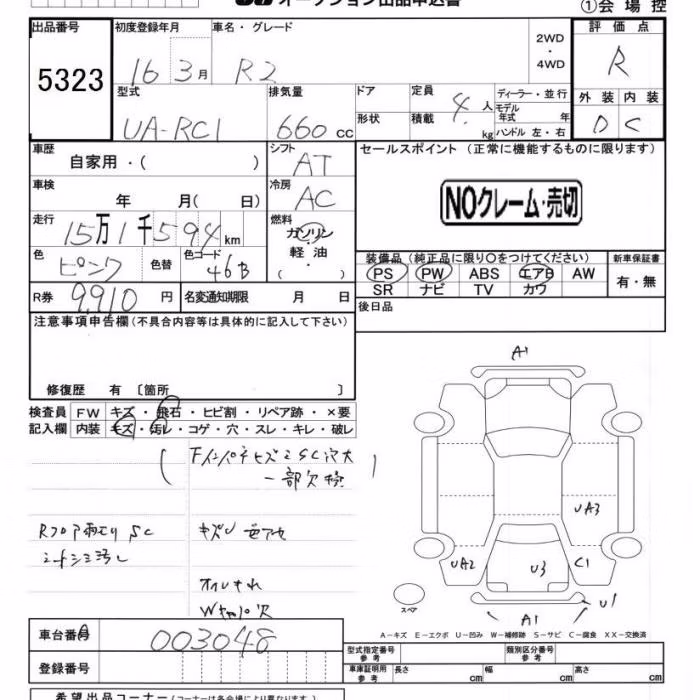 オークション出品申込書
①会場控
出品番号 初度登録年月 車名・グレード 2WD・4WD 評価点
5323 16 3月 R2 R
型式 排気量 ドア 定員 4人 ディーラー・並行 外装 内装
UA-RC1 660cc 形状 積載 kg モデル年式 年 D C
ハンドル 左・右
車歴 自家用・( ) シフト AT セールスポイント (正常に機能するものに限ります)
車検 年 月( 日) 冷房 AC NOクレーム・売切
走行 15万1千594km 燃料 ガソリン・軽油
( ・ )
色 ピンク 色替 色コード 46B 装備品 (純正品に限り○をつけてください) 新車保証書
PS PW ABS エアB AW 有・無
SR ナビ TV カワ
R券 9,910円 名変通知期限 月 日 後日品
注意事項申告欄(不具合内容等は具体的に記入して下さい)
修復歴 有 〔箇所 〕
検査員 FW キズ・飛石・ヒビ割・リペア跡・×要
記入欄 内装 キズ・汚レ・コゲ・穴・スレ・キレ・破レ
一部欠損
Rフロア SC
シートシミ汚レ
オイルもれ
A1
UA3
UA2 U3 C1
U1
A1
スペア
A−キズ E−エクボ U−凹み W−補修跡 S−サビ C−腐食 XX−交換済
車台番号 003048
登録番号
型式指定番号 参考 類別区分番号 参考
車庫証明用 参考 長さ cm 幅 cm 高さ cm
希望出品コーナー(コーナーは各会場により異なります)